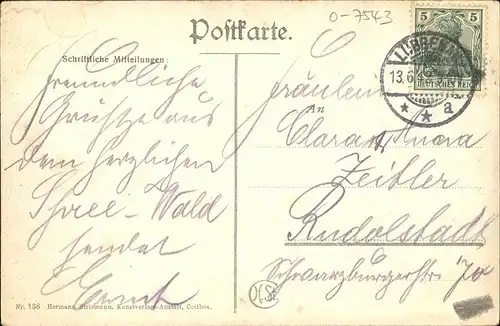 0-7543
Postkarte.
5 5
DEUTSCHES REICH
LÜBBENAU
13.6.
* * a
Schriftliche Mitteilungen:
Freundliche
Grüße aus
dem herzlichen
Spree-Wald
sendet
Ernst
Fräulein
An
Clara Anna
Zeitler
Rudolstadt
Schwarzburgerstr.
Nr. 136 Hermann Striemann, Kunstverlags-Anstalt, Cottbus.